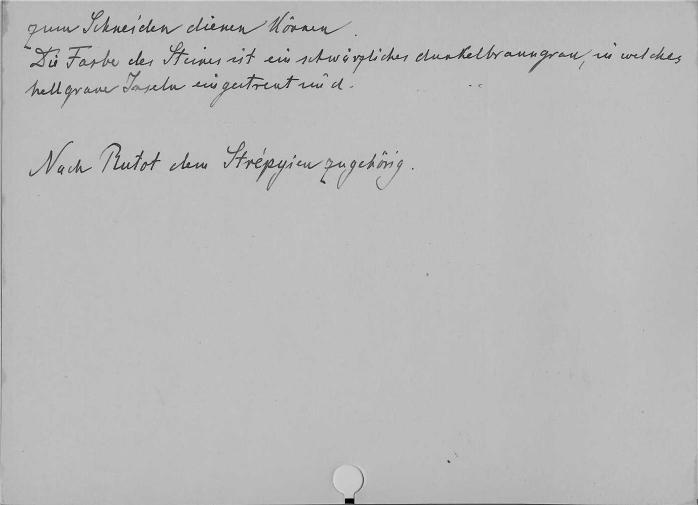 zum Schneiden dienen können.
Die Farbe des Steines ist ein schwärzliches dunkelbraungrau, in welches
hellgraue Inseln eingestreut sind.
Nach Rutot dem Strépyien zugehörig.